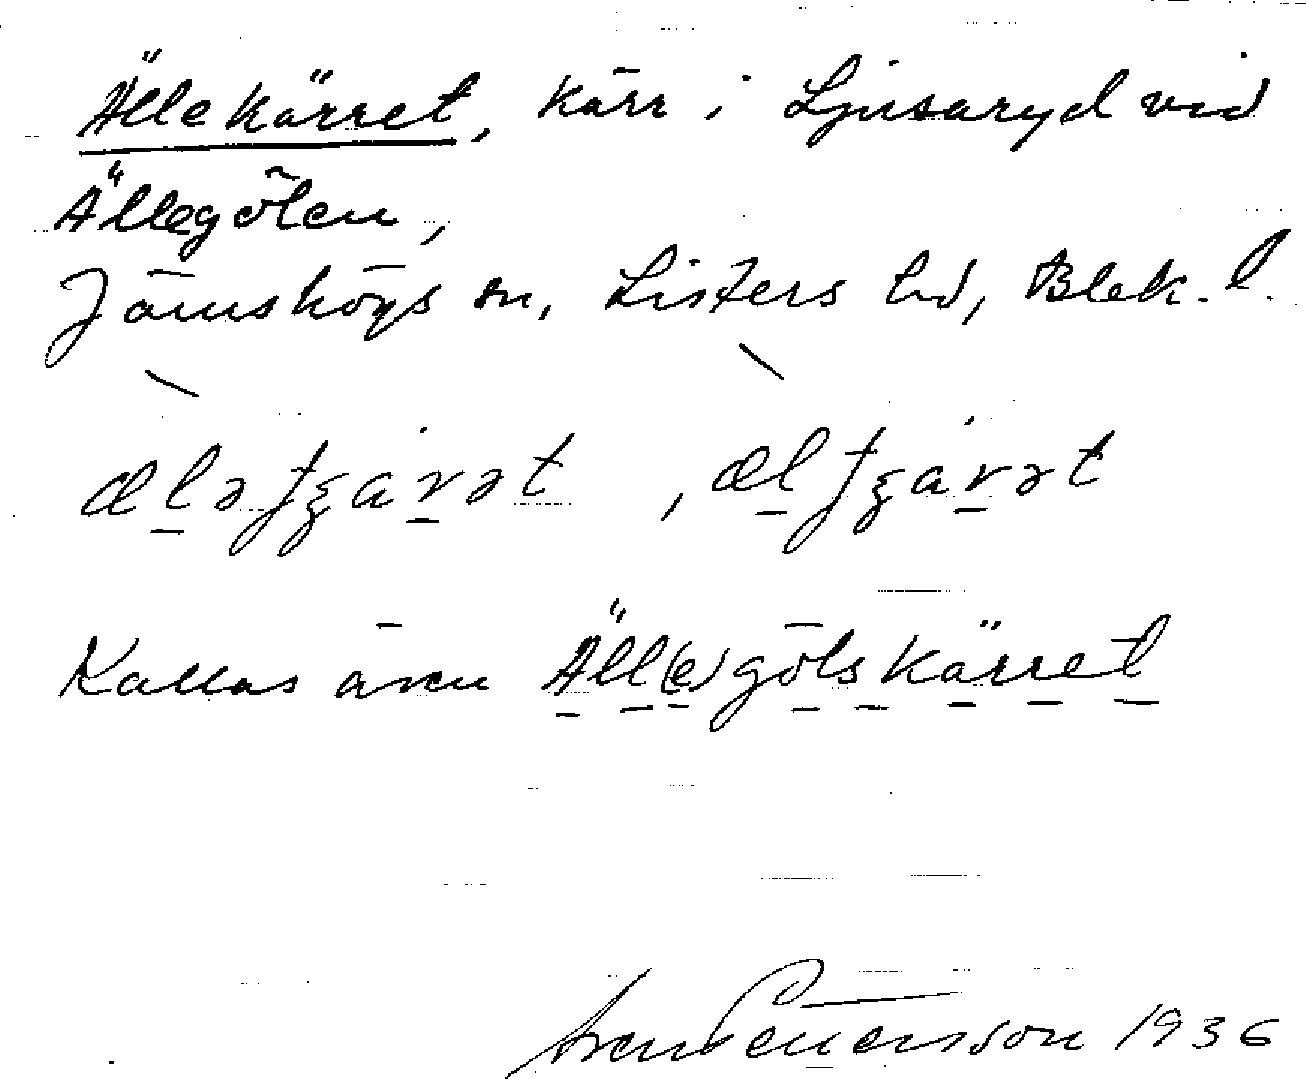 Ällekärret, kärr i Ljusaryd vid
Ällegölen,
Jämshögs sn, Listers hd, Blek. l.
Kallas även Äll(e)gölskärret
Sven Benersson 1936